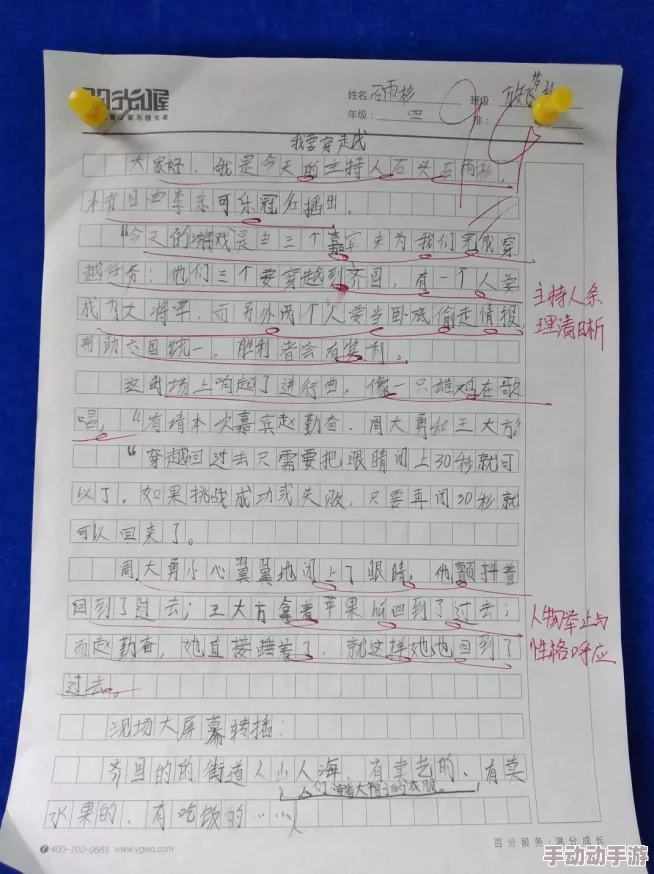 阳光喔
姓名 石雨杉 班级:
年级: 四 班:
我要穿越成
大家好,我是今天的主持人石头石雨杉,
本节目由李东可乐冠名播出。
“今天的游戏是由三个嘉宾来为我们完成穿
越任务:他们三个要穿越到齐国,有一个人要
成为大将军,而另外两个人要当卧底偷走情报,
帮助六国统一,胜利者会有奖利。
这时场上响起了进行曲,像一只雄鸡在歌
唱,“有请本次嘉宾赵勤奋、周大勇和王大方
“穿越回过去只需要把眼睛闭上30秒就可
以了,如果挑战成功或失败,只要再闭30秒就
可以回来了。
周大勇小心翼翼地闭上了眼睛,他颤抖着
回到了过去;王大方拿着苹果 回到了过去;
而赵勤奋,她直接睡着了,就这样她也回到了
过去。
现场大屏幕转播:
齐国的的街道人山人海,有卖艺的、有卖
人们 着大 子的衣服。
水果的,有吃饭的……
主持人条
理清晰
人物举止与
性格呼应
400-700-9585 www.ygwo.com
百分服务·满分成长
手动动手游